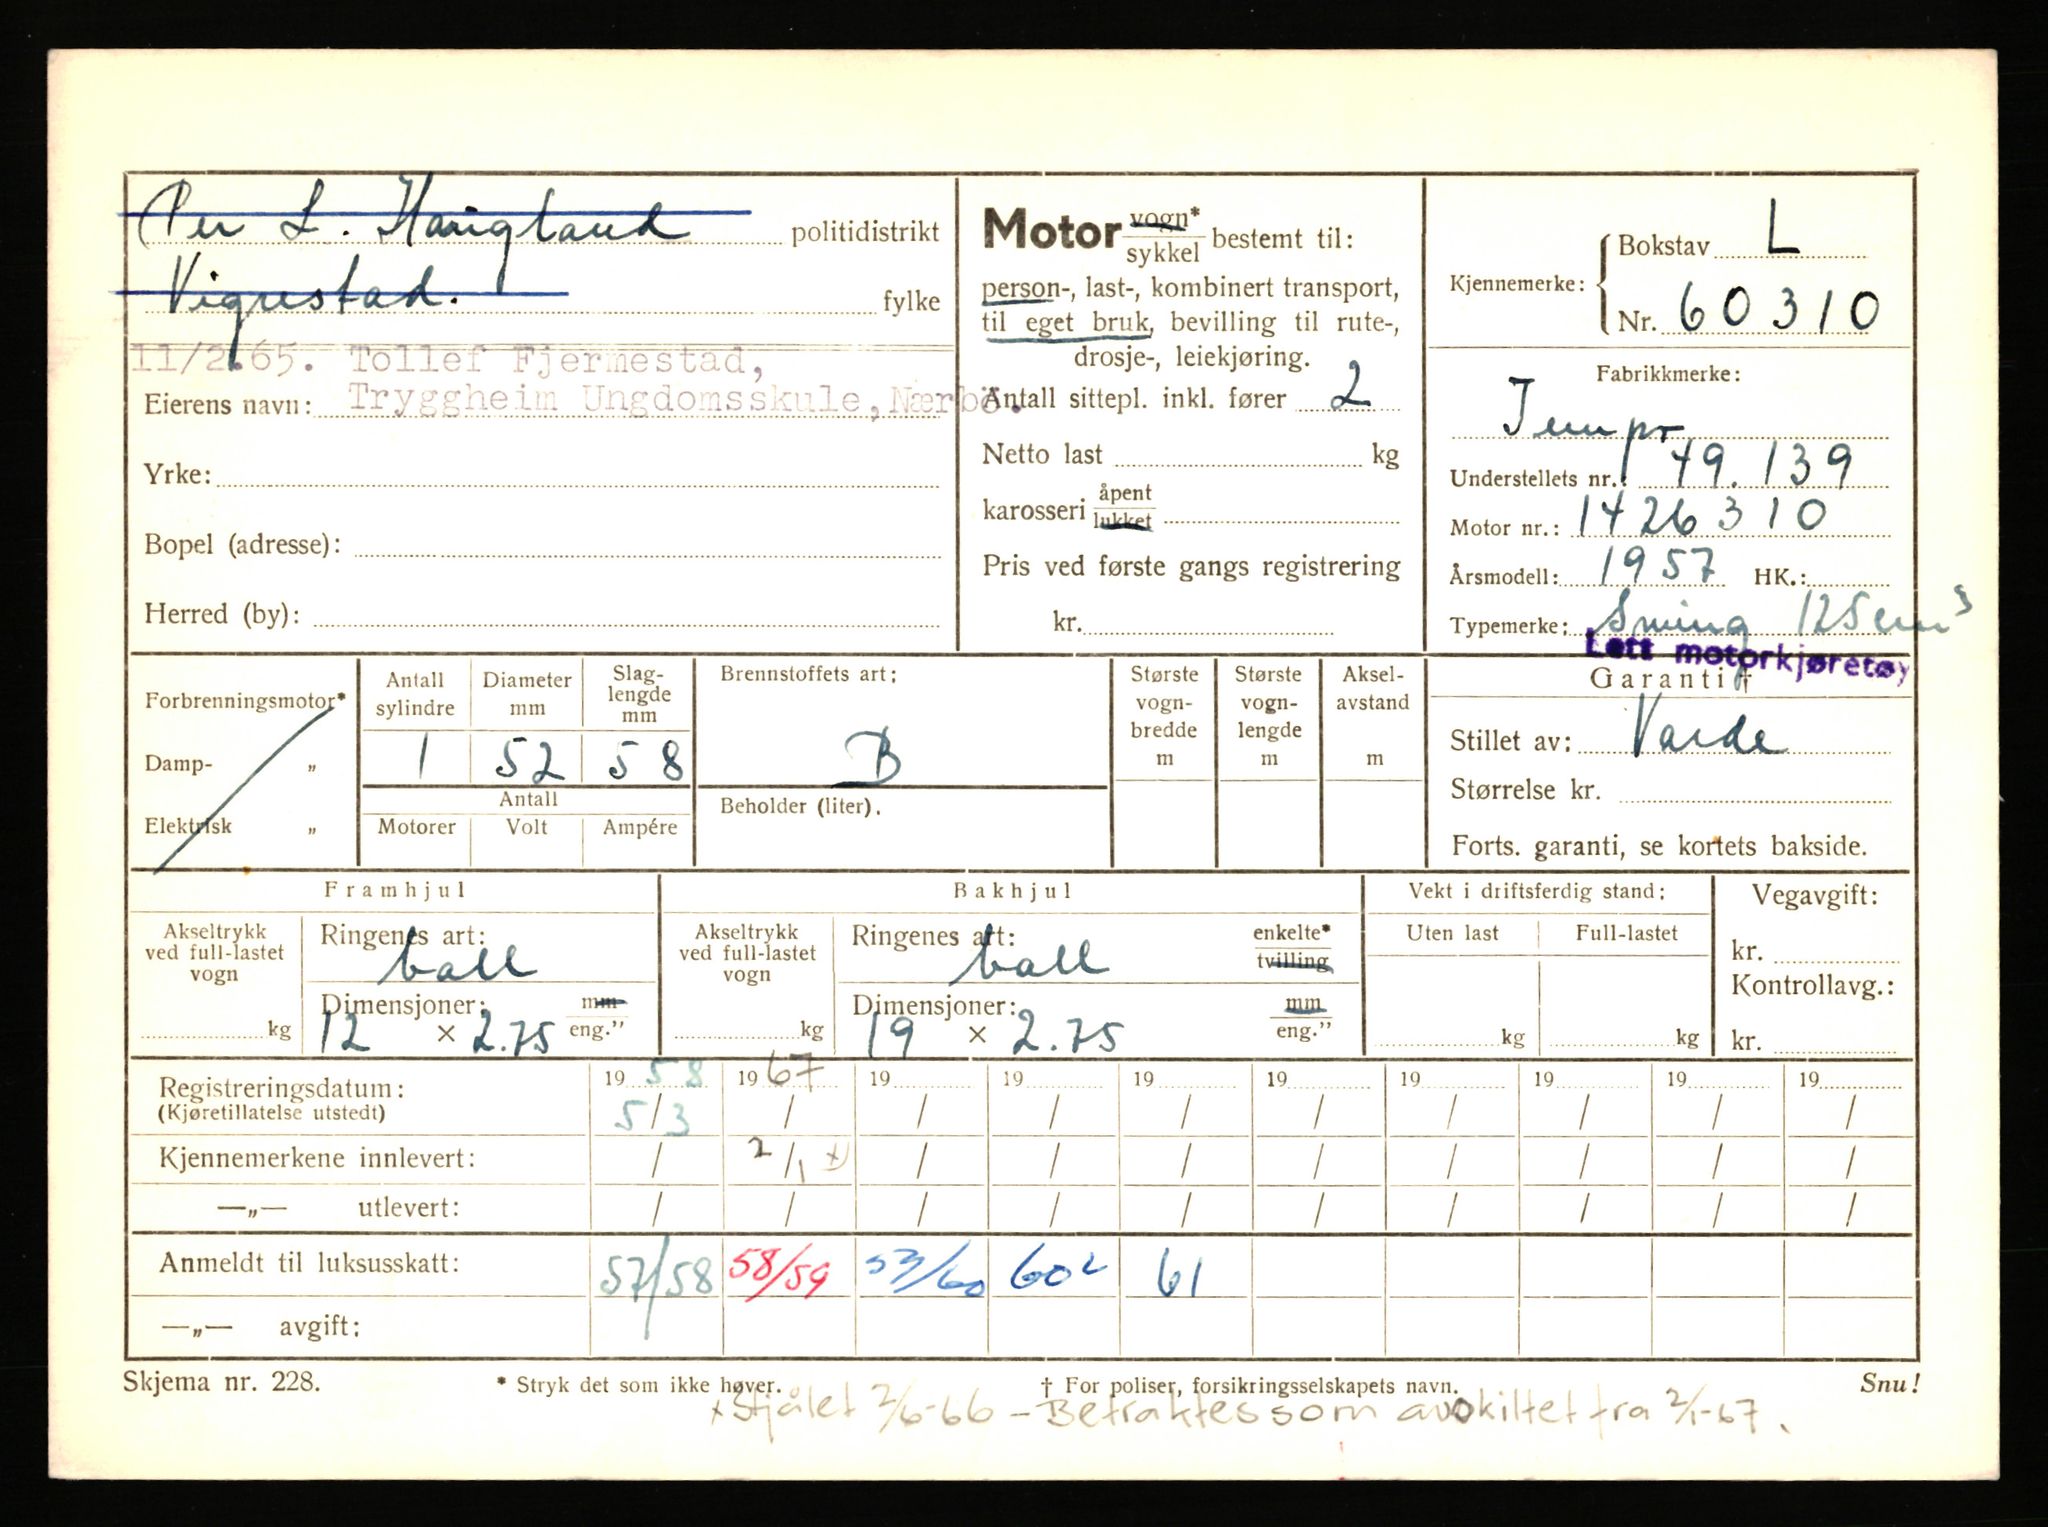 Per L. Haugland politidistrikt
Vigrestad. fylke
11/2.65. Tollef Fjermestad,
Eierens navn: Tryggheim Ungdomsskule, Nærbö.
Yrke:
Bopel (adresse):
Herred (by):
Motor vogn* sykkel bestemt til:
person-, last-, kombinert transport,
til eget bruk, bevilling til rute-,
drosje-, leiekjøring.
Antall sittepl. inkl. fører 2
Netto last kg
karosseri åpent lukket
Pris ved første gangs registrering
kr.
Kjennemerke: Bokstav L
Nr. 60310
Fabrikkmerke:
Tempo
Understellets nr.: 79.139
Motor nr.: 1426310
Årsmodell: 1957 HK.:
Typemerke: Swing 125 cm³
Lett motorkjøretøy
Garanti †
Stillet av: Varde
Størrelse kr.
Forts. garanti, se kortets bakside.
Forbrenningsmotor*
Damp- „
Elektrisk „
Antall sylindre Diameter mm Slaglengde mm
1 52 58
Antall
Motorer Volt Ampére
Brennstoffets art:
B
Beholder (liter).
Største vognbredde m Største vognlengde m Akselavstand m
Framhjul Bakhjul Vekt i driftsferdig stand: Vegavgift:
Akseltrykk ved full-lastet vogn kg
Ringenes art: ball
Dimensjoner: 12 × 2.75 mm eng."
Akseltrykk ved full-lastet vogn kg
Ringenes art: ball enkelte* tvilling
Dimensjoner: 19 × 2.75 mm eng."
Uten last kg Full-lastet kg
kr.
Kontrollavg.:
kr.
Registreringsdatum: 19 58 19 67 19 19 19 19 19 19 19 19
(Kjøretillatelse utstedt) 5/3 / / / / / / / / /
Kjennemerkene innlevert: / 2/1 x) / / / / / / / /
—„— utlevert: / / / / / / / / / /
Anmeldt til luksusskatt: 57/58 58/59 59/60 60² 61
—„— avgift:
Skjema nr. 228. * Stryk det som ikke høver. † For poliser, forsikringsselskapets navn. Snu!
x Stjålet 2/6-66 – Betraktes som avskiltet fra 2/1-67.